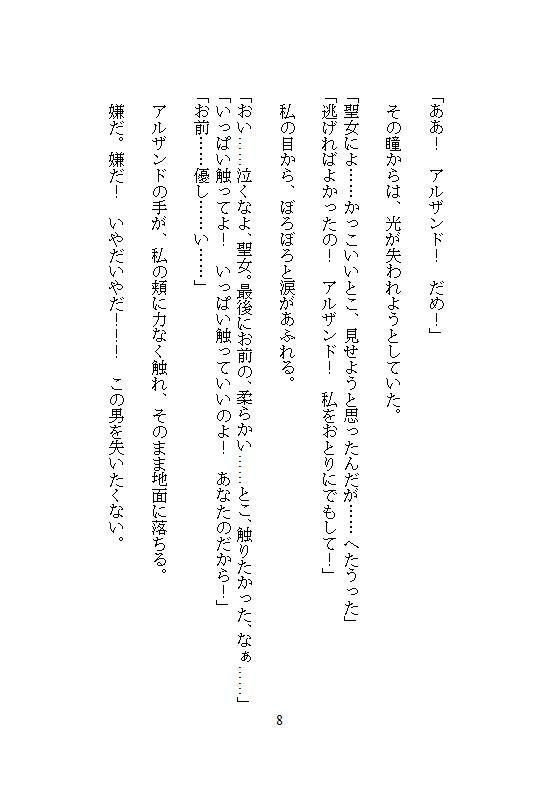 「ああ！　アルザンド！　だめ！」
その瞳からは、光が失われようとしていた。
「聖女によ……かっこいいとこ、見せようと思ったんだが……へたうった」
「逃げればよかったの！　アルザンド！　私をおとりにでもして！」
私の目から、ぼろぼろと涙があふれる。
「おい……泣くなよ、聖女。最後にお前の、柔らかい……とこ、触りたかった、なぁ……」
「いっぱい触ってよ！　いっぱい触っていいのよ！　あなたのだから！」
「お前……優し……い……」
アルザンドの手が、私の頬に力なく触れ、そのまま地面に落ちる。
嫌だ。嫌だ！　いやだいやだーーー！　この男を失いたくない。
8